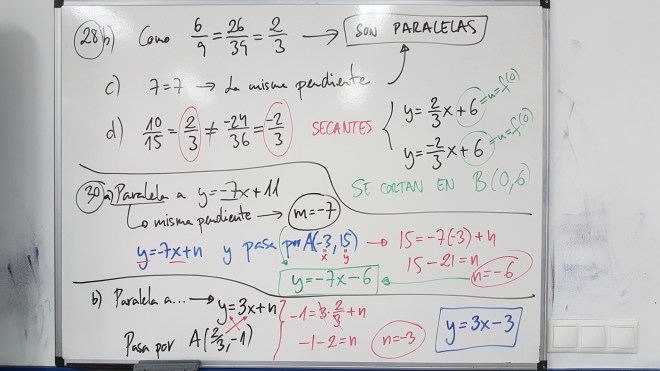 28 b) Como 6/9 = 26/39 = 2/3 → SON PARALELAS
c) 7=7 → La misma pendiente
d) 10/15 = 2/3 ≠ -24/36 = -2/3 SECANTES
y = 2/3 x + 6 = n = f(0)
y = -2/3 x + 6 = n = f(0)
SE CORTAN EN B(0,6)
30 a) Paralela a y = -7x + 11
Lo misma pendiente → m = -7
y = -7x + n y pasa por A(-3, 15) → 15 = -7(-3) + n
x y
15 - 21 = n
n = -6
y = -7x - 6
b) Paralela a... → y = 3x + n
Pasa por A(2/3, -1)
-1 = 3 · 2/3 + n
-1 - 2 = n
n = -3
y = 3x - 3